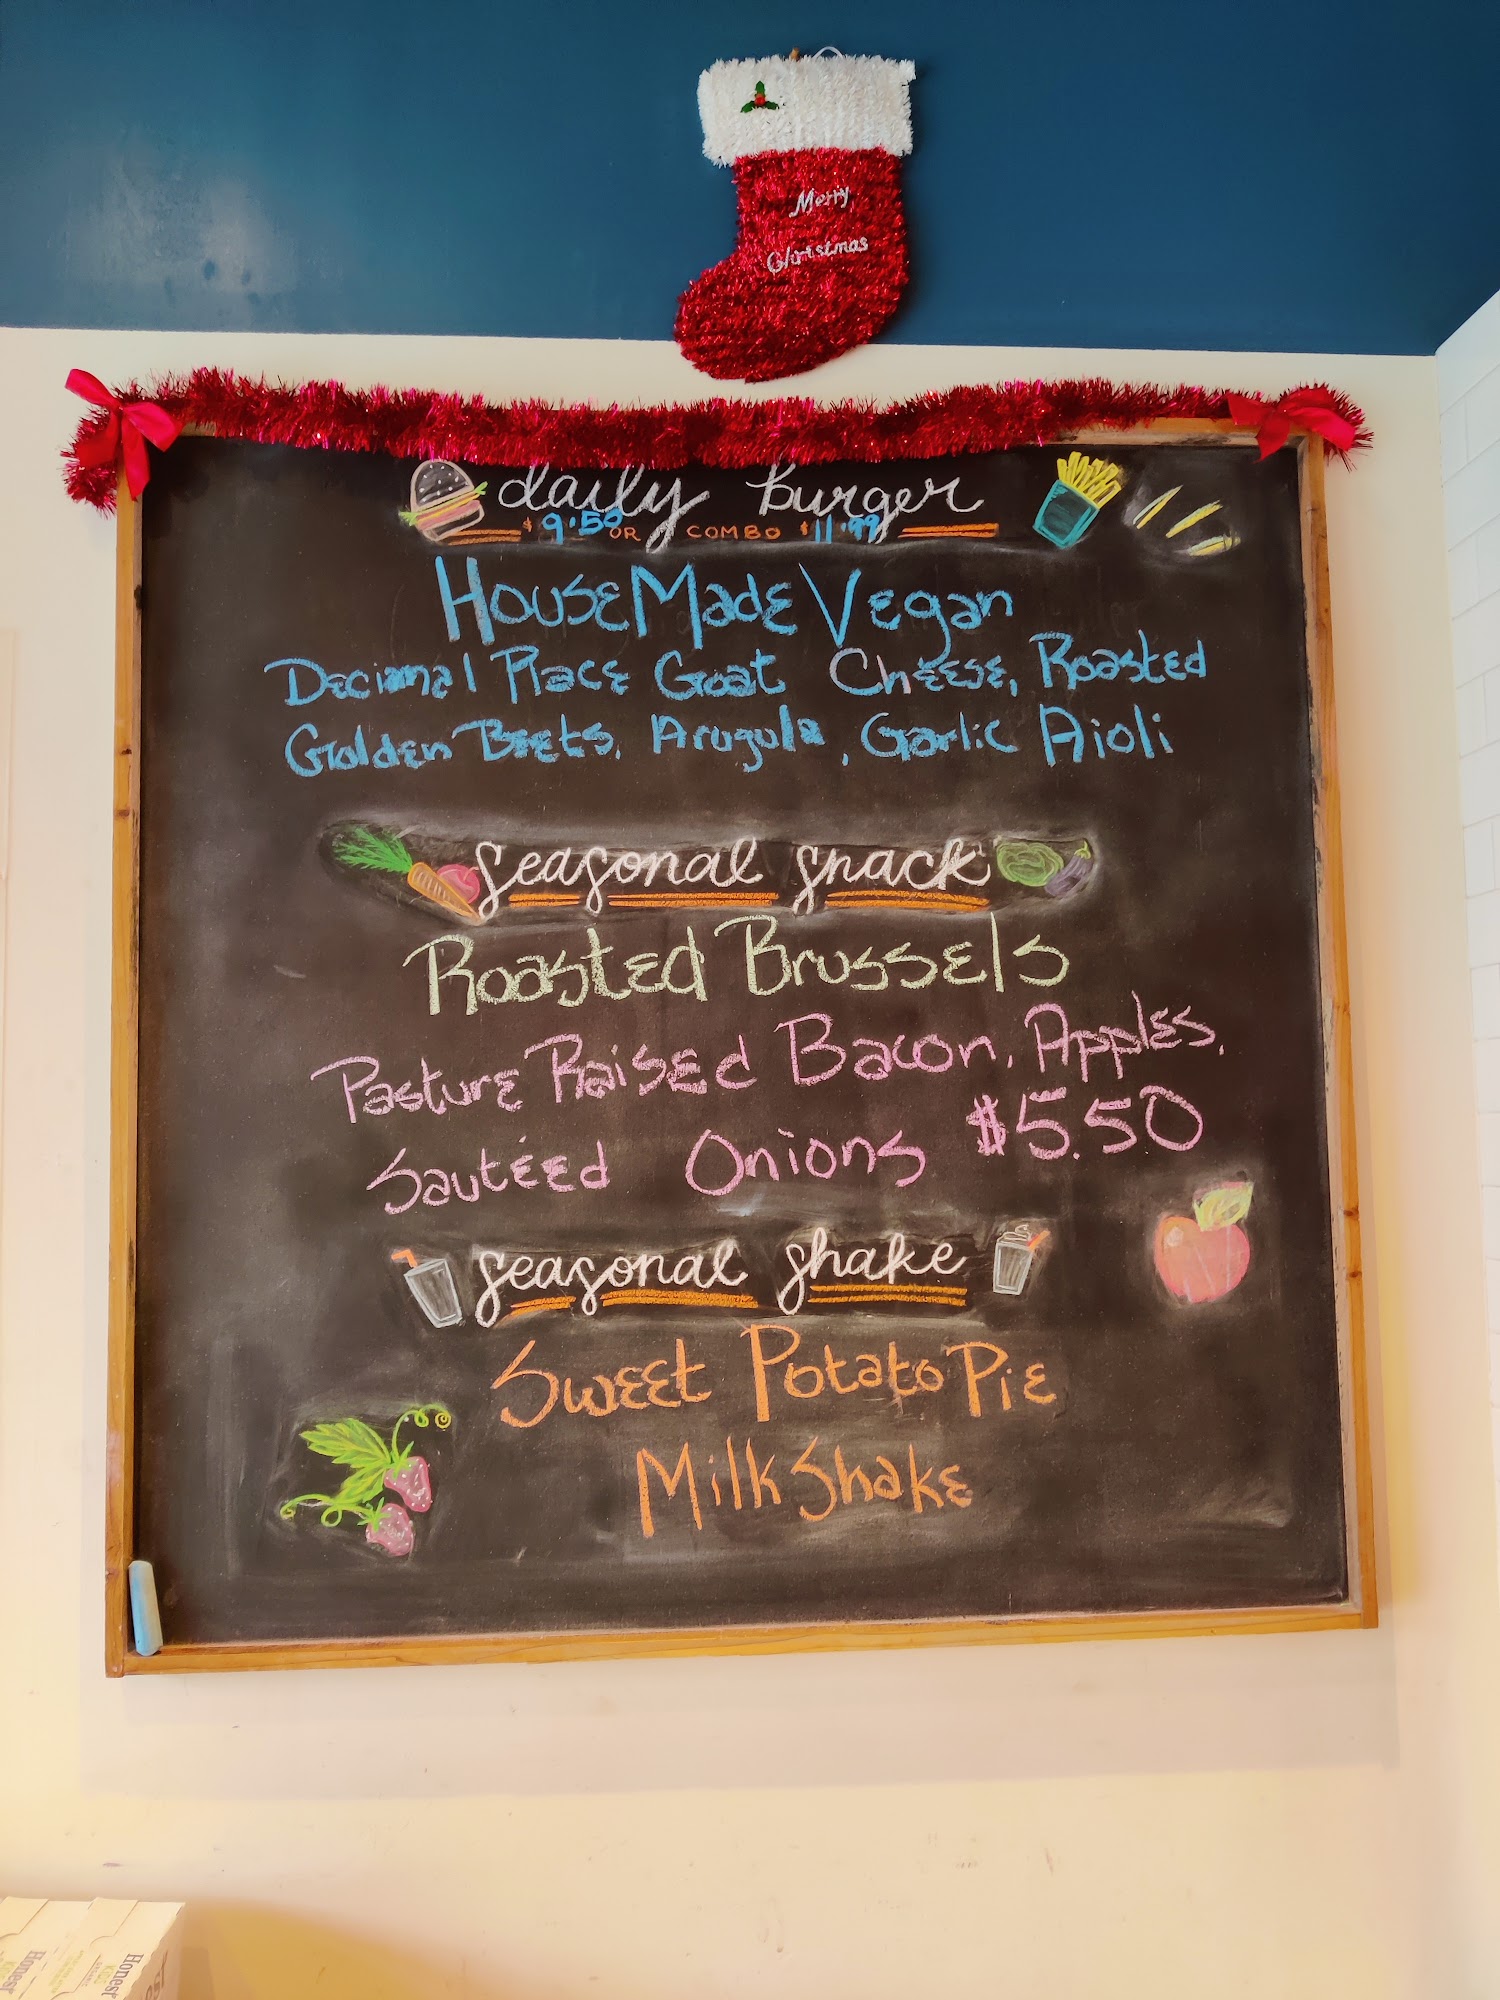 Merry
Christmas
daily burger
$9.50 OR COMBO $11.99
HouseMade Vegan
Decimal Place Goat Cheese, Roasted
Golden Beets, Arugula, Garlic Aioli
seasonal snack
Roasted Brussels
Pasture Raised Bacon, Apples,
Sautéed Onions $5.50
seasonal shake
Sweet Potato Pie
MilkShake
Honest
Honest